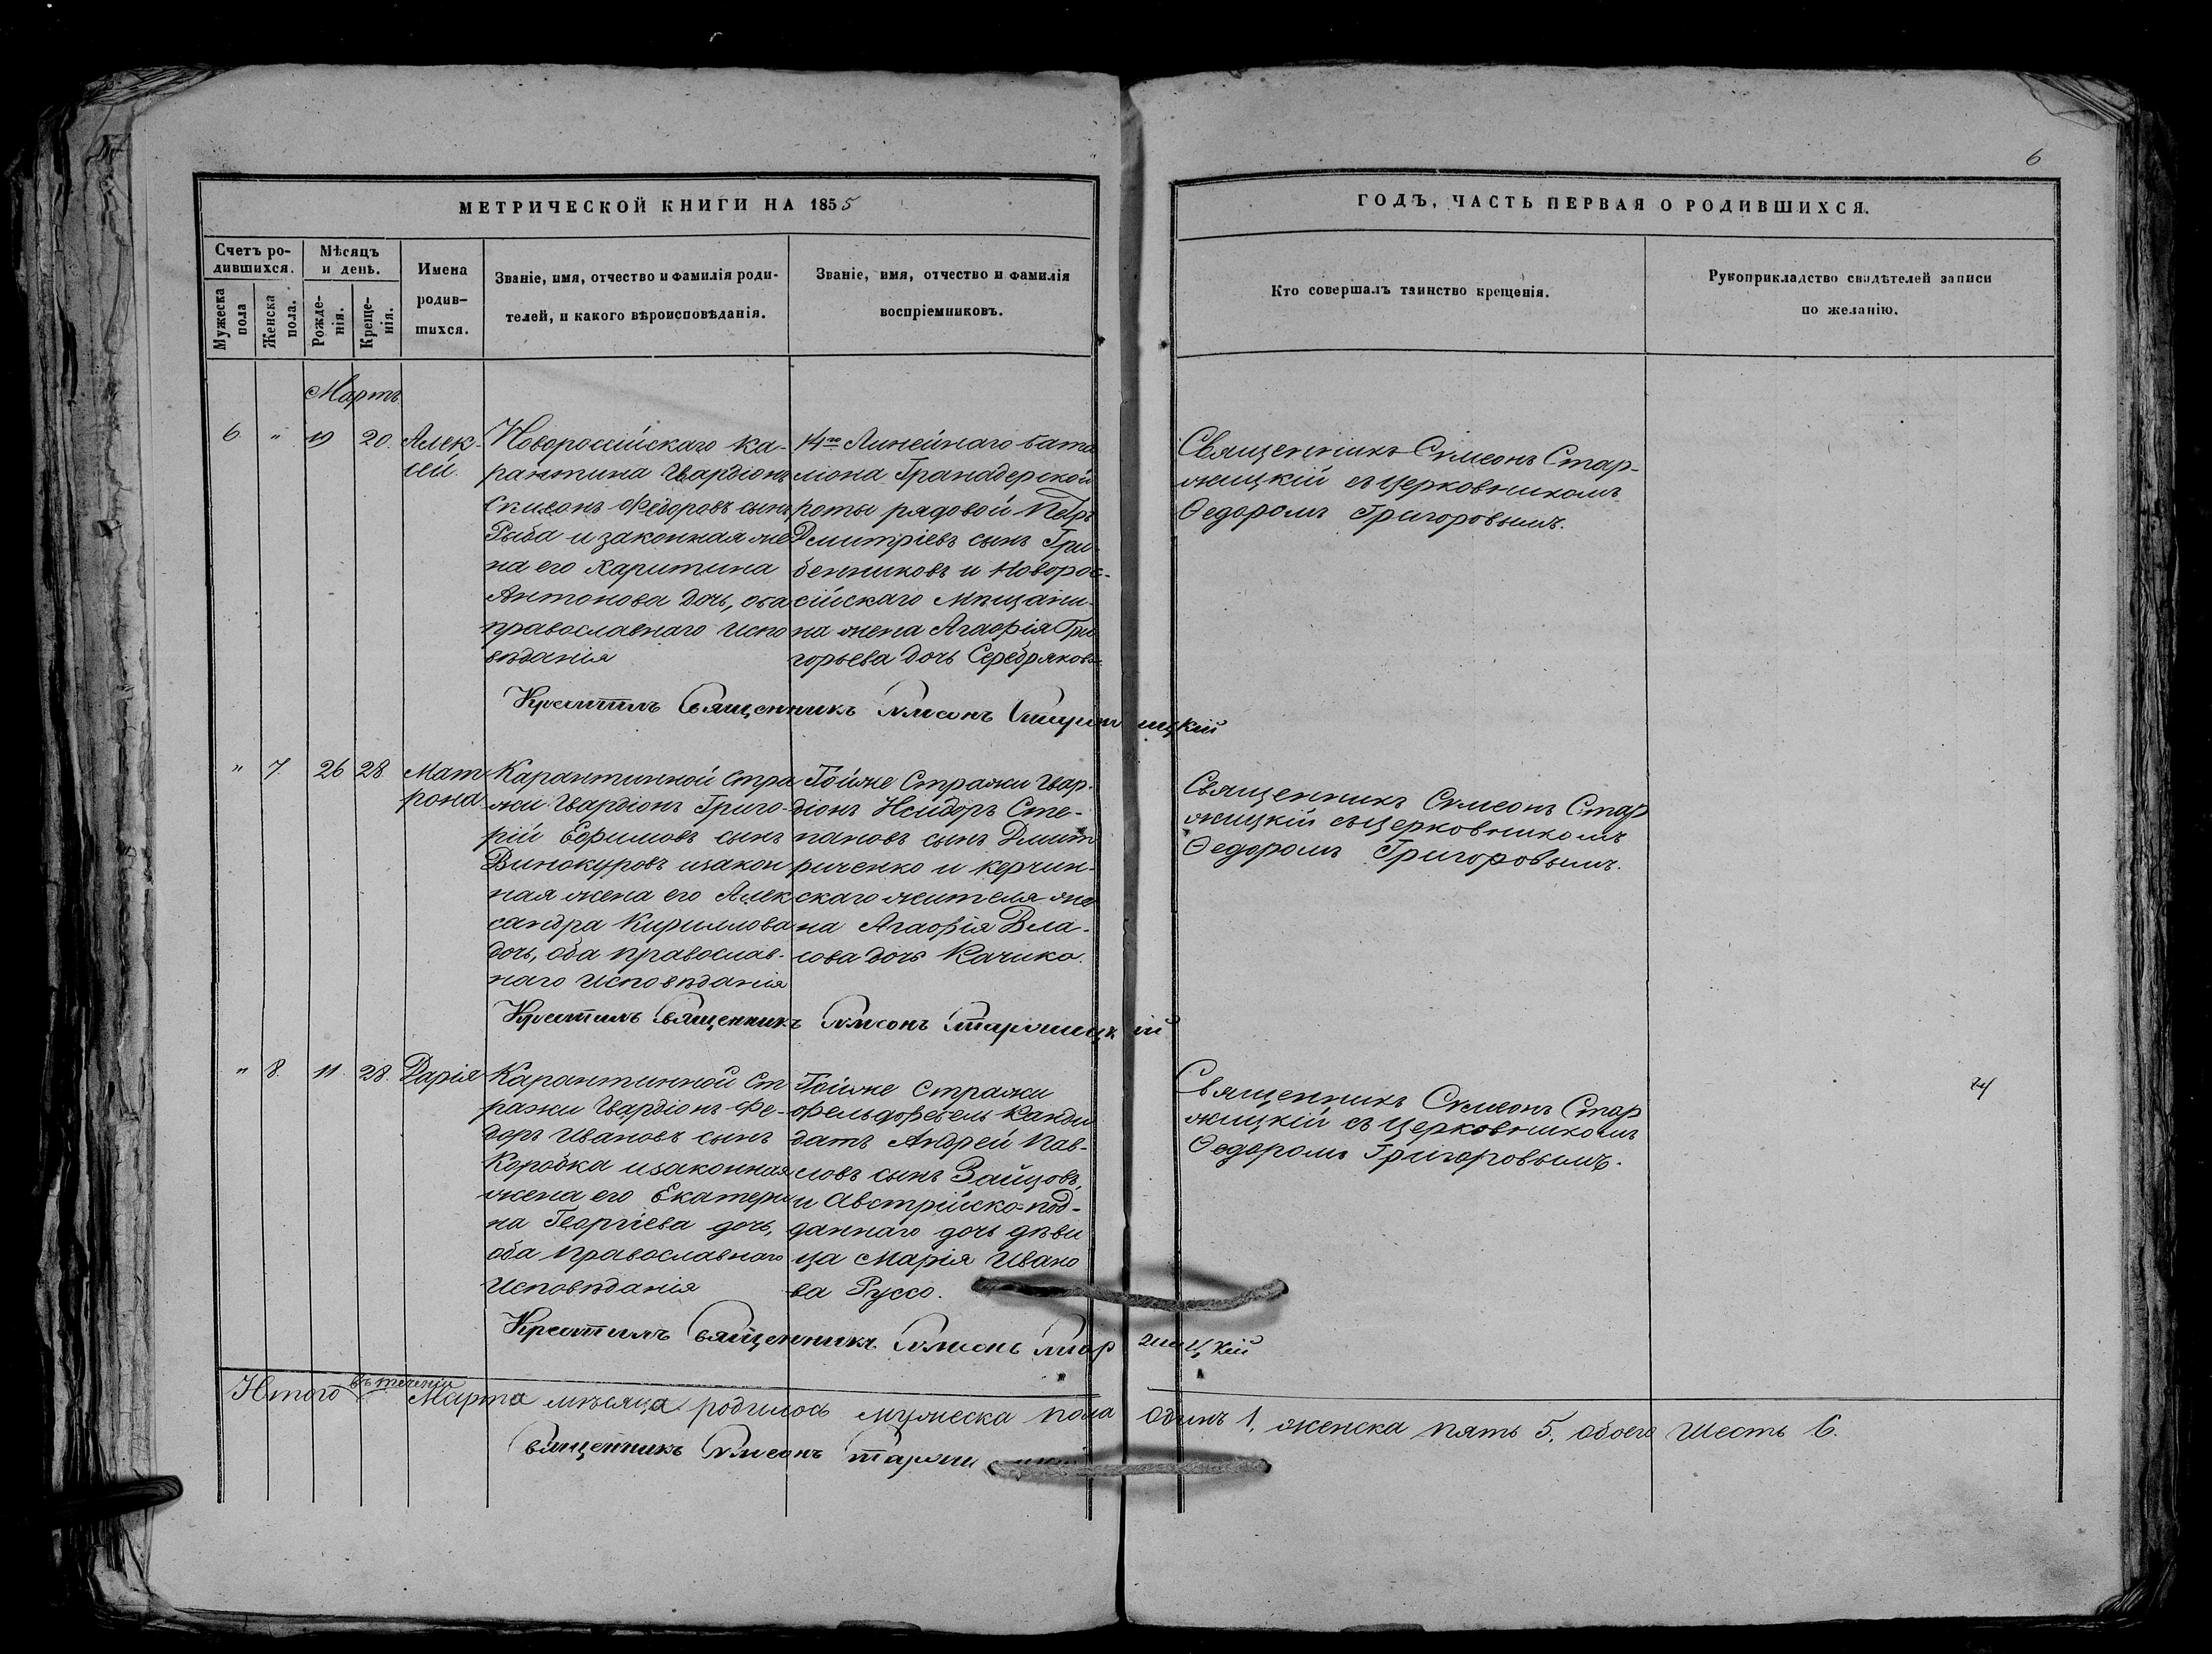 6
МЕТРИЧЕСКОЙ КНИГИ НА 1855
ГОДЪ, ЧАСТЬ ПЕРВАЯ О РОДИВШИХСЯ.
Счетъ ро-
дившихся.
Мужеска
пола
Женска
пола.
Мѣсяцъ
и день.
Рожде-
нія.
Креще-
нія.
Имена
родив-
шихся.
Званіе, имя, отчество и фамилія роди-
телей, и какого вѣроисповѣданія.
Званіе, имя, отчество и фамилія
воспріемниковъ.
Кто совершалъ таинство крещенія.
Рукоприкладство свидѣтелей записи
по желанію.
Мартъ.
6. " 19 20.
Алек-
сѣй.
Новороссійскаго ка-
рантина Гвардіонъ
Симеонъ Федоровъ сынъ
Рыба и законная же
на его Харитина
Антонова дочь, оба
православнаго испо
вѣданія
14го Линейнаго бата
ліона Гранадерской
роты рядовой Петръ
Дмитріевъ сынъ Гри-
бенниковъ и Новорос-
сійскаго Мѣщани-
на жена Агафія Гри
горьева дочь Серебрякова.
Священникъ Симеонъ Стар-
жицкій съ Церковникомъ
Ѳедоромъ Григоровымъ.
Крестилъ Священникъ Симеонъ Старжицкій
" 7. 26 28
Мат
рона
Карантинной Стра
жи Гвардіонъ Григо-
рій Ефимовъ сынъ
Винокуровъ изакон
ная жена его Алек
сандра Кириллова
дочь, оба православ-
наго исповѣданія
Тойже Стражи Гвар-
діонъ Исидоръ Сте-
пановъ сынъ Дмит
риченко и керчин-
скаго жителя же
на Агафія Вла-
сова дочь Качика.
Священникъ Симеонъ Стар
жицкій съ Церковникомъ
Ѳедоромъ Григоровымъ.
Крестилъ Священникъ Симеонъ Старжицкій
" 8. 11. 28.
Дарія
Карантинной Ст
ражи Гвардіонъ Фе-
доръ Ивановъ сынъ
Коробка изаконная
жена его Екатери
на Георгіева дочь,
оба православнаго
Исповѣданія
Тойже Стражи
Фельдфебель Канди
датъ Андрей Пав-
ловъ сынъ Зайцовъ,
и Австрійско-под-
даннаго дочь дѣви
ца Марія Ивано
ва Руссо.
Священникъ Симеонъ Стар
жицкій съ Церковникомъ
Ѳедоромъ Григоровымъ.
Крестилъ Священникъ Симеонъ Старжицкій
Итого въ теченіи Марта мѣсяца родилось мужеска пола одинъ 1, женска пять 5, обоего шесть 6.
Священникъ Симеонъ Старжи